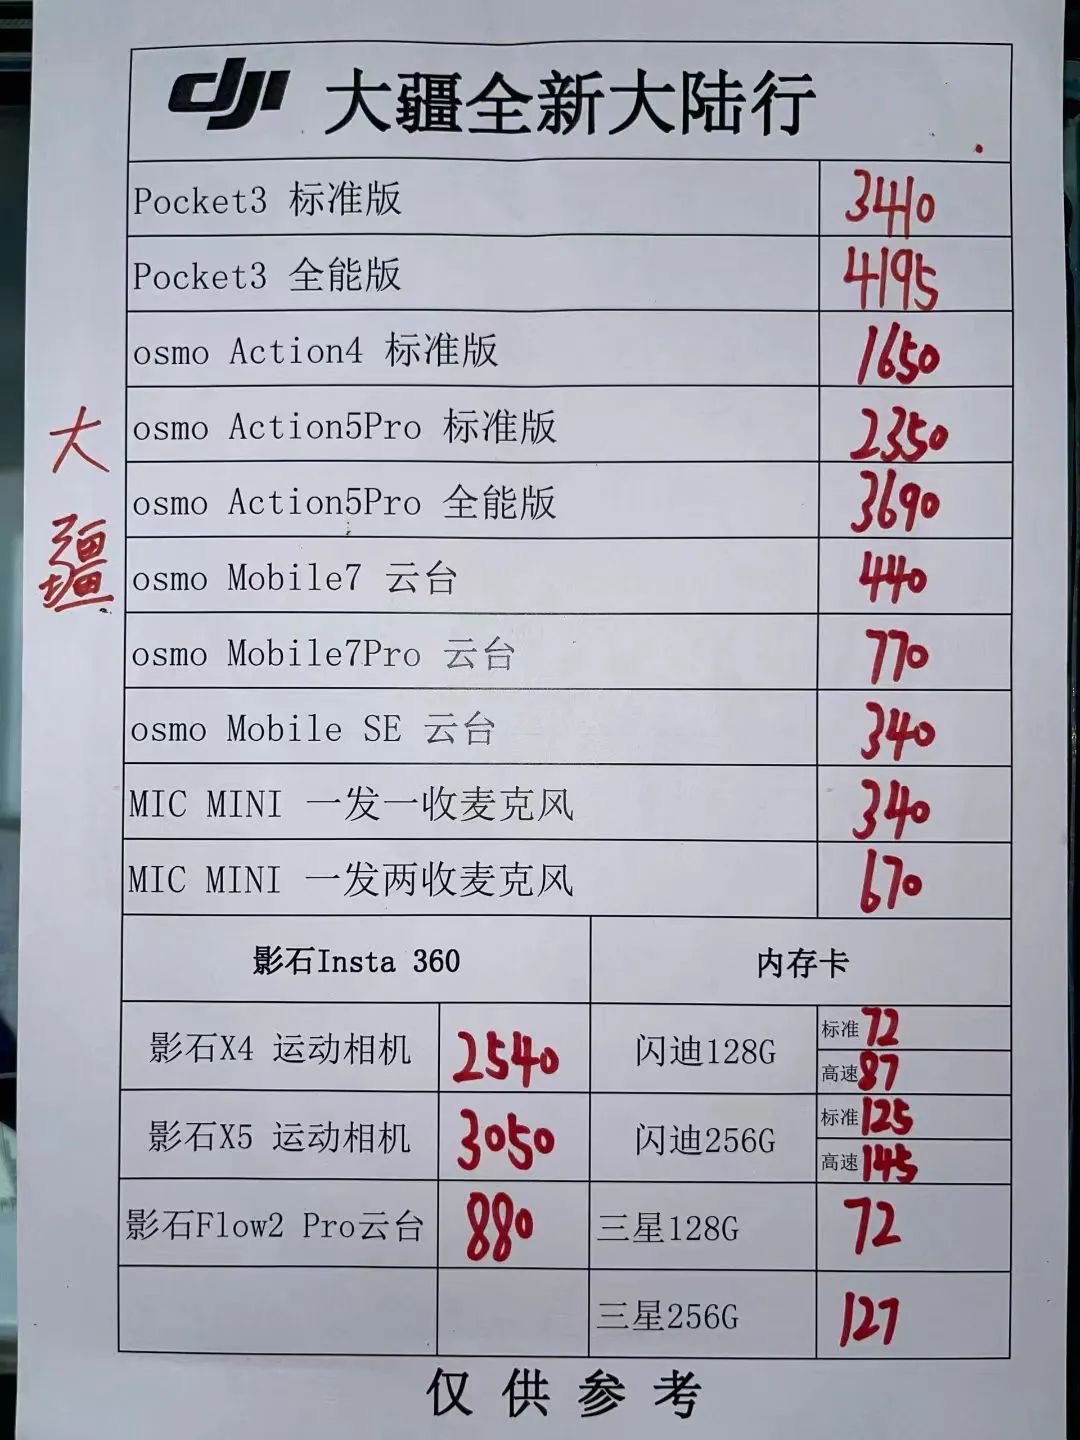 dji 大疆全新大陆行
Pocket3 标准版 3410
Pocket3 全能版 4195
osmo Action4 标准版 1650
osmo Action5Pro 标准版 2350
osmo Action5Pro 全能版 3690
osmo Mobile7 云台 440
osmo Mobile7Pro 云台 770
osmo Mobile SE 云台 340
MIC MINI 一发一收麦克风 340
MIC MINI 一发两收麦克风 670
大疆
影石Insta 360 内存卡
影石X4 运动相机 2540 闪迪128G 标准 72
高速 87
影石X5 运动相机 3050 闪迪256G 标准 125
高速 145
影石Flow2 Pro云台 880 三星128G 72
三星256G 127
仅供参考